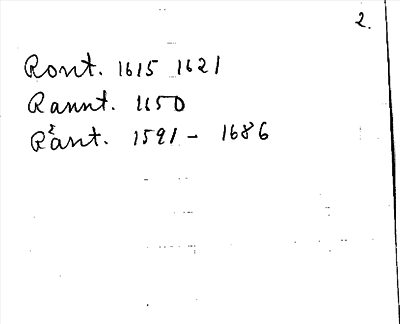 2.
Ront. 1615 1621
Rannt. 1650
Rant. 1591 - 1686